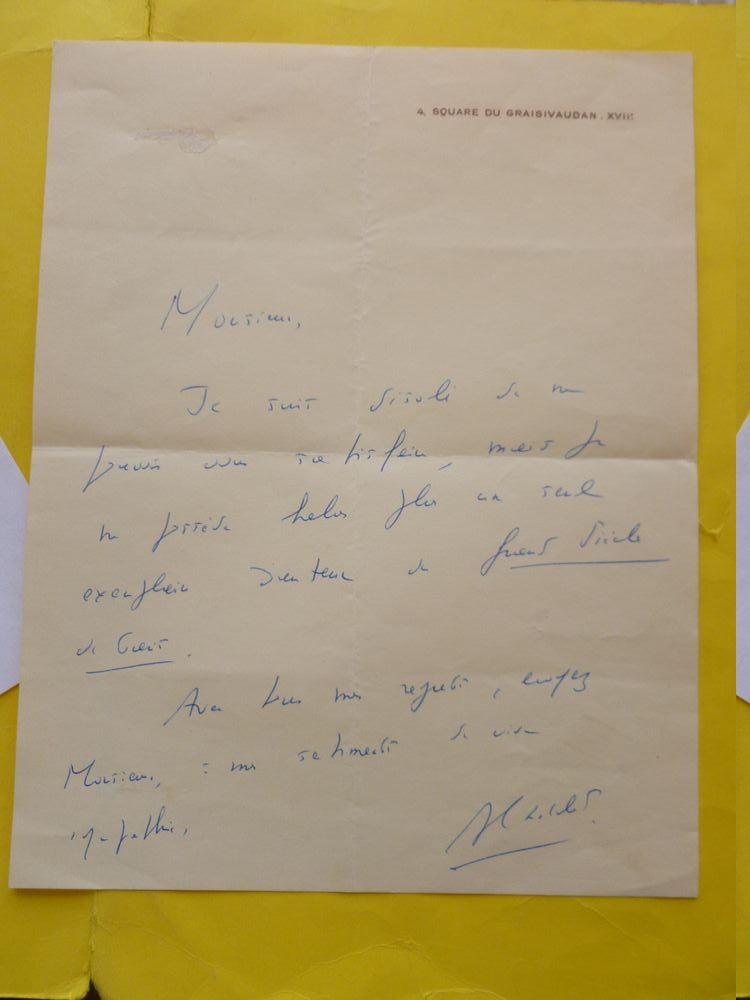 4, SQUARE DU GRAISIVAUDAN. XVIIe
Monsieur,
Je suis désolé de ne
pouvoir vous satisfaire, mais je
ne possède hélas plus un seul
exemplaire d'auteur du Grand Siècle
de
Avec tous mes regrets, croyez
Monsieur, à mes sentiments de vive
sympathie,